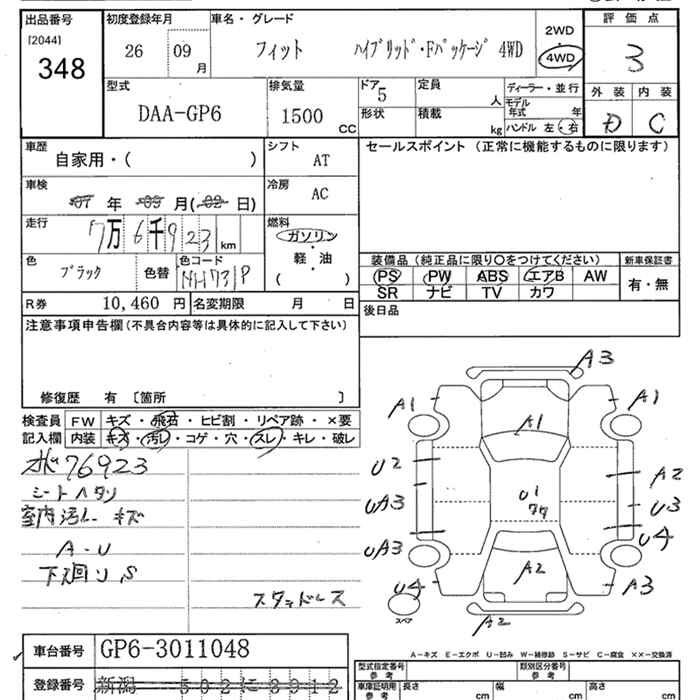 出品番号 初度登録年月 車名・グレード 2WD 評価点
[2044] 348 26 09月 フィット ハイブリッド・Fパッケージ 4WD 4WD 3
型式 排気量 ドア 定員 ディーラー・並行 外装 内装
DAA-GP6 1500 CC 5 人 モデル年式 年 D C
形状 積載 kg ハンドル 左・右
車歴 シフト セールスポイント (正常に機能するものに限ります)
自家用・( ) AT
車検 冷房
07年 09月(02日) AC
走行 燃料
7万6千923km ガソリン
軽・油
( )
色 色替 色コード 装備品 (純正品に限り○をつけてください) 新車保証書
ブラック NH731P PS PW ABS エアB AW 有・無
SR ナビ TV カワ
R券 10,460 円 名変期限 月 日 後日品
注意事項申告欄 (不具合内容等は具体的に記入して下さい)
修復歴 有 〔箇所 〕
検査員 FW キズ・飛石・ヒビ割・リペア跡・×要
記入欄 内装 キズ・汚レ・コゲ・穴・スレ・キレ・破レ
76923
シートヘタリ
室内汚レ キズ
A-U
下廻り S
スタッドレス
A3
A1 A1 A1
U2 A2
UA3 U1 U3
UA3 U4
U4 A2 A3
スペア A2
車台番号 GP6-3011048
登録番号 新潟 502 に 2912
A-キズ E-エクボ U-凹み W-補修跡 S-サビ C-腐食 ××-交換済
型式指定番号 参考 類別区分番号 参考
車庫証明用 参考 長さ cm 幅 cm 高さ cm